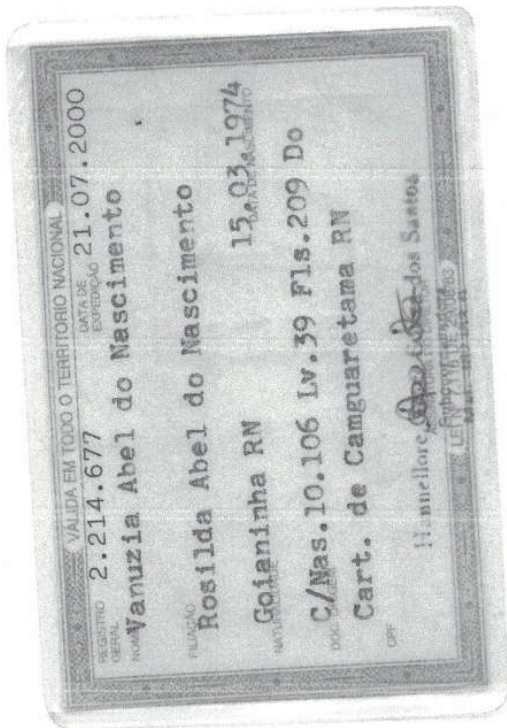 VÁLIDA EM TODO O TERRITÓRIO NACIONAL
REGISTRO GERAL 2.214.677 DATA DE EXPEDIÇÃO 21.07.2000
NOME Vanuzia Abel do Nascimento
FILIAÇÃO
Rosilda Abel do Nascimento
Goianinha RN 15.03.1974
DATA DE NASCIMENTO
C/Nas.10.106 Lv.39 Fls.209 Do
DOC
Cart. de Camguaretama RN
CPF
Hannellore dos Santos
LEI Nº 7.116 DE 29/08/83